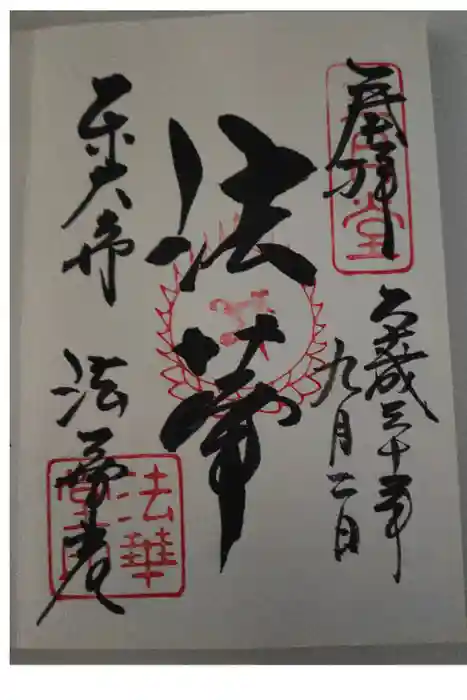 奉拝
平成三十年
九月二日
法華
東大寺
法華堂
法華
堂